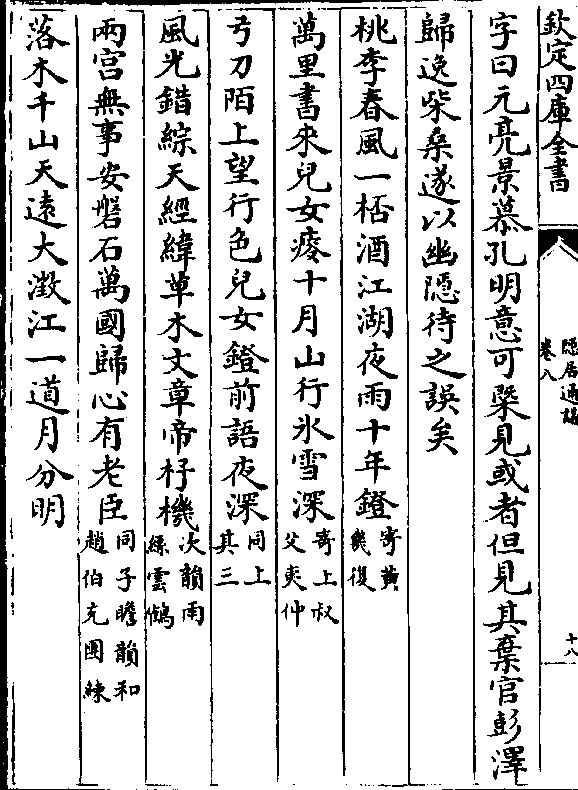 欽定四庫全書
隠居通議
卷八
十八
字曰元亮景慕孔明意可槩見或者但見其棄官彭澤
歸逸柴桑遂以幽隠待之誤矣
桃李春風一桮酒江湖夜雨十年鐙寄黄幾復
萬里書來兒女瘦十月山行氷雪深寄上叔父夷仲
弓刀陌上望行色兒女鐙前語夜深同上其三
風光錯綜天經緯草木文章帝杼機次韻雨絲雲鶴
兩宫無事安磐石萬國歸心有老臣同子瞻韻和趙伯充團練
落木千山天遠大澂江一道月分明